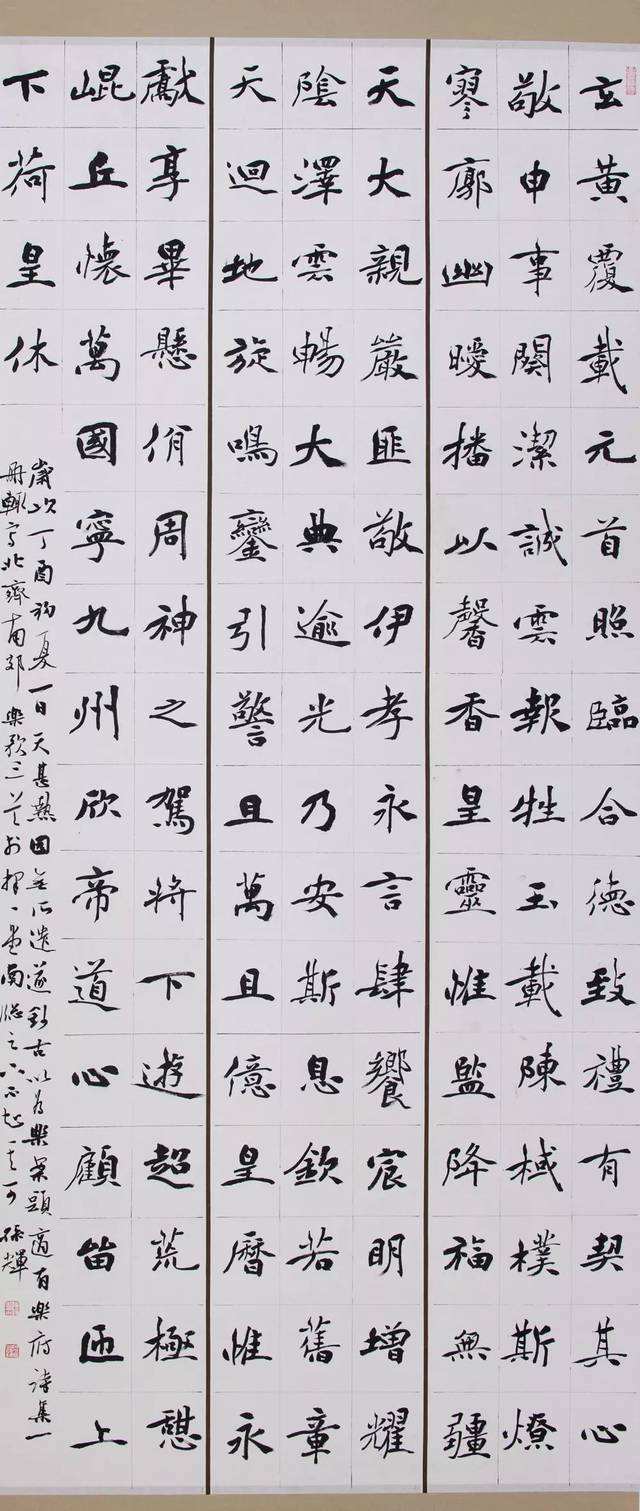 玄黃覆載元首照臨合德致禮有契其心
敬申事闋潔誠雲報牲玉載陳棫樸斯燎
寥廓幽曖播以馨香皇靈惟監降福無疆
天大親嚴匪敬伊孝永言肆饗宸明增耀
陰澤雲暢大典逾光乃安斯息欽若舊章
天迴地旋鳴鑾引警且萬且億皇曆惟永
獻享畢懸佾周神之駕將下遊超荒極憩
崐丘懷萬國寧九州欣帝道心顧留匝上
下荷皇休
歲次丁酉初夏一日天甚熱因無所遣遂古以為樂案頭適有樂府詩集一
冊輒寫北齊南郊樂歌三首孫輝